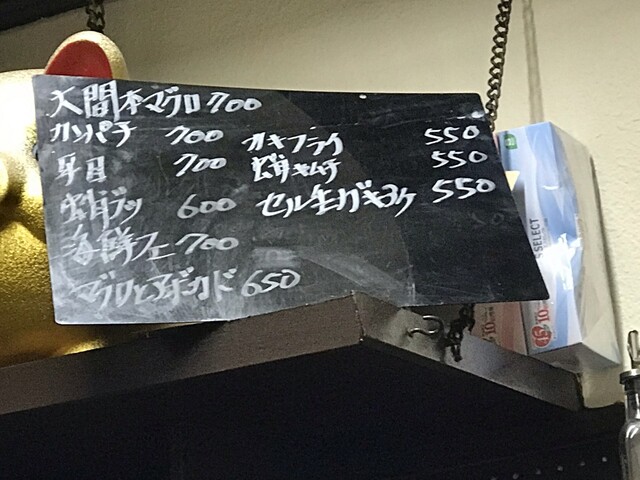 大間本マグロ 700
カンパチ 700
平目 700
蛸ブツ 600
海鮮フェ 700
マグロとアボカド 650
カキフライ 550
蛸キムチ 550
セル生ガキ2ケ 550
SELECT